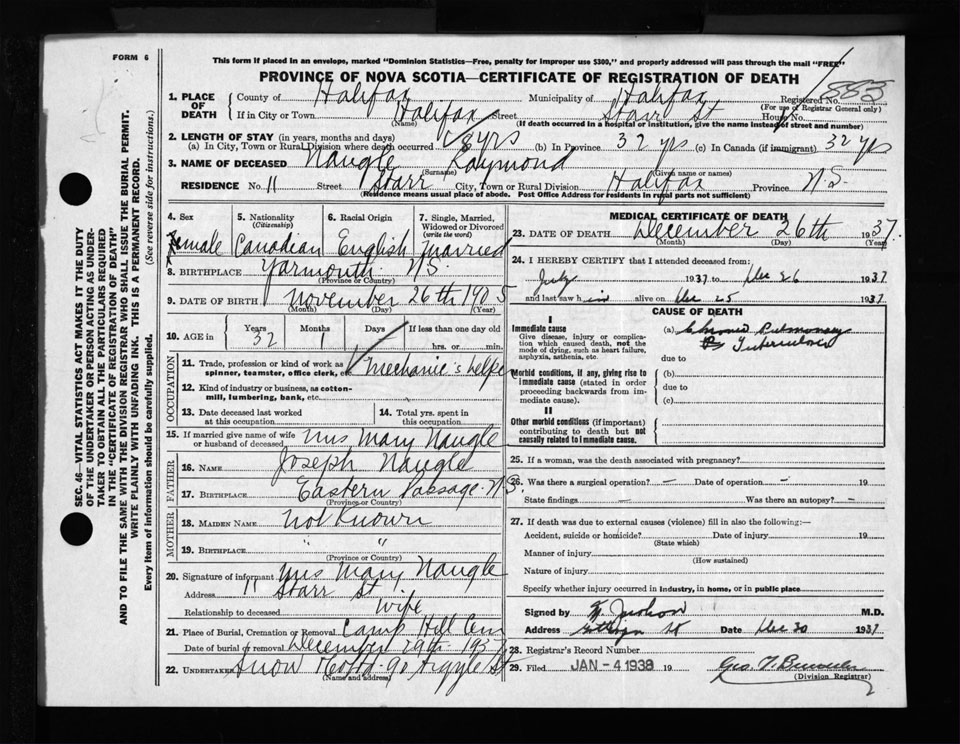 FORM 6
This form if placed in an envelope, marked "Dominion Statistics—Free, penalty for improper use $300," and properly addressed will pass through the mail "FREE"
PROVINCE OF NOVA SCOTIA—CERTIFICATE OF REGISTRATION OF DEATH
1. PLACE OF DEATH
County of Halifax Municipality of Halifax Registered No. 1885
(For use of Registrar General only)
If in City or Town Halifax Street Starr St
(Name) (If death occurred in a hospital or institution, give the name instead of street and number)
2. LENGTH OF STAY (in years, months and days)
(a) In City, Town or Rural Division where death occurred yrs (b) In Province 32 yrs (c) In Canada (if immigrant) 32 yrs
3. NAME OF DECEASED Naugle Raymond
(Surname) (Given name or names)
RESIDENCE No. 11 Street Starr City, Town or Rural Division Halifax Province N.S.
(Residence means usual place of abode. Post Office Address for residents in rural parts not sufficient)
4. Sex 5. Nationality (Citizenship) 6. Racial Origin 7. Single, Married, Widowed or Divorced (write the word)
male Canadian English Married
8. BIRTHPLACE Yarmouth N.S.
(Province or Country)
9. DATE OF BIRTH November 26th 1905
(Month) (Day) (Year)
10. AGE in Years Months Days If less than one day old
32 1 hrs. or min.
OCCUPATION
11. Trade, profession or kind of work as spinner, teamster, office clerk, etc. Mechanic's helper
12. Kind of industry or business, as cotton-mill, lumbering, bank, etc.
13. Date deceased last worked at this occupation
14. Total yrs. spent in this occupation
15. If married give name of wife or husband of deceased Mrs Mary Naugle
FATHER
16. NAME Joseph Naugle
17. BIRTHPLACE Eastern Passage N.S.
(Province or Country)
MOTHER
18. MAIDEN NAME Not Known
19. BIRTHPLACE " "
(Province or Country)
20. Signature of informant Mrs Mary Naugle
Address 11 Starr St
Relationship to deceased Wife
21. Place of Burial, Cremation or Removal Camp Hill Cem
Date of burial or removal December 29th 1937
22. UNDERTAKER Snow & Co Ltd. 90 Argyle St
(Name and address)
MEDICAL CERTIFICATE OF DEATH
23. DATE OF DEATH December 26th 1937.
(Month) (Day) (Year)
24. I HEREBY CERTIFY that I attended deceased from:
July 1937 to Dec 26 1937
and last saw him alive on Dec 25 1937
CAUSE OF DEATH
I
Immediate cause
Give disease, injury or complication which caused death, not the mode of dying, such as heart failure, asphyxia, asthenia, etc.
(a) Chronic Pulmonary
Tuberculosis
due to
Morbid conditions, if any, giving rise to immediate cause (stated in order proceeding backwards from immediate cause).
(b)
due to
(c)
II
Other morbid conditions (if important) contributing to death but not causally related to immediate cause.
25. If a woman, was the death associated with pregnancy?
26. Was there a surgical operation? — Date of operation — 19
State findings — Was there an autopsy? —
27. If death was due to external causes (violence) fill in also the following:—
Accident, suicide or homicide? Date of injury 19
(State which)
Manner of injury
(How sustained)
Nature of injury
Specify whether injury occurred in industry, in home, or in public place
Signed by M.D.
Address St Date Dec 30 1937
28. Registrar's Record Number
29. Filed JAN - 4 1938 19
(Division Registrar)
SEC. 46—VITAL STATISTICS ACT MAKES IT THE DUTY
OF THE UNDERTAKER OR PERSON ACTING AS UNDER-
TAKER TO OBTAIN ALL THE PARTICULARS REQUIRED
IN THE "CERTIFICATE OF REGISTRATION OF DEATH"
AND TO FILE THE SAME WITH THE DIVISION REGISTRAR WHO SHALL ISSUE THE BURIAL PERMIT.
WRITE PLAINLY WITH UNFADING INK. THIS IS A PERMANENT RECORD.
Every item of information should be carefully supplied. (See reverse side for instructions.)